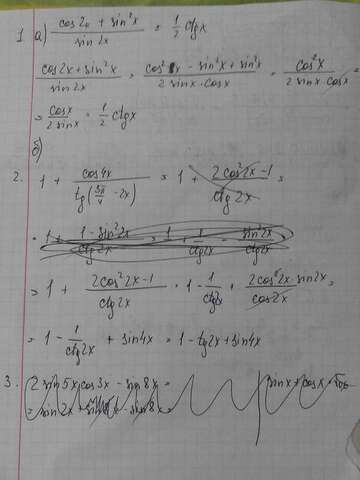 1. а) (cos2x + sin²x)/(sin2x) = 1/2 ctgx
(cos2x + sin²x)/(sin2x) = (cos²x - sin²x + sin²x)/(2 sinx · cosx) = (cos²x)/(2 sinx cosx) =
= (cosx)/(2 sinx) = 1/2 ctgx
б)
2. 1 + (cos4x)/(tg(5π/4 - 2x)) = 1 + (2cos²2x-1)/(ctg2x) =
= 1 + (2cos²2x-1)/(ctg2x) = 1 - 1/(ctg2x) + (2cos²2x · sin2x)/(cos2x) =
= 1 - 1/(ctg2x) + sin4x = 1 - tg2x + sin4x
3. 2 sin5x cos3x - sin8x =
= sin2x + sin8x - sin8x =
sinx + cosx